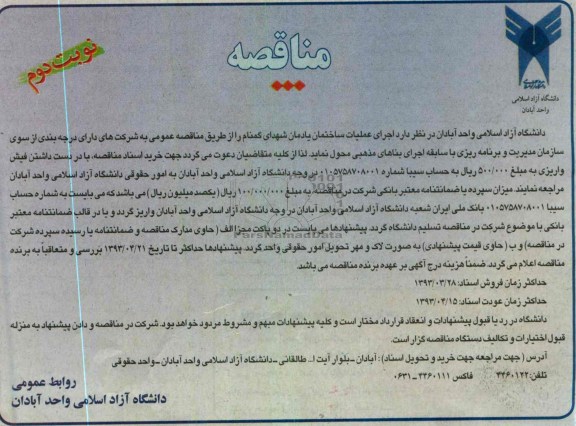 مناقصه
نوبت دوم
دانشگاه آزاد اسلامی
واحد آبادان
دانشگاه آزاد اسلامی واحد آبادان در نظر دارد اجرای عملیات ساختمان یادمان شهدای گمنام را از طریق مناقصه عمومی به شرکت های دارای درجه بندی از سوی
سازمان مدیریت و برنامه ریزی با سابقه اجرای بناهای مذهبی محول نماید. لذا از کلیه متقاضیان دعوت می گردد جهت خرید اسناد مناقصه، با در دست داشتن فیش
واریزی به مبلغ ۵۰۰/۰۰۰ ریال به حساب سیبا شماره ۰۱۰۵۷۵۸۷۰۸۰۰۱ در وجه دانشگاه آزاد اسلامی واحد آبادان به امور حقوقی دانشگاه آزاد اسلامی واحد آبادان
مراجعه نمایند. میزان سپرده یا ضمانتنامه معتبر بانکی شرکت در مناقصه به مبلغ ۱۰۰/۰۰۰/۰۰۰ ریال (یکصد میلیون ریال) می باشد که می بایست به شماره حساب
سیبا ۰۱۰۵۷۵۸۷۰۸۰۰۱ بانک ملی ایران شعبه دانشگاه آزاد اسلامی واحد آبادان در وجه دانشگاه آزاد اسلامی واحد آبادان واریز گردد و یا در قالب ضمانتنامه معتبر
بانکی با موضوع شرکت در مناقصه تسلیم دانشگاه گردد. پیشنهادها می بایست در دو پاکت مجزا الف (حاوی مدارک مناقصه و ضمانتنامه یا رسیده سپرده شرکت
در مناقصه) و ب (حاوی قیمت پیشنهادی) به صورت لاک و مهر تحویل امور حقوقی واحد گردد. پیشنهادها حداکثر تا تاریخ ۱۳۹۳/۰۴/۲۱ بررسی و متعاقباً به برنده
مناقصه اعلام می گردد. ضمناً هزینه درج آگهی بر عهده برنده مناقصه می باشد.
حداکثر زمان فروش اسناد: ۱۳۹۳/۰۳/۲۸
حداکثر زمان عودت اسناد: ۱۳۹۳/۰۴/۱۵
دانشگاه در رد یا قبول پیشنهادات و انعقاد قرارداد مختار است و کلیه پیشنهادات مبهم و مشروط مردود خواهد بود. شرکت در مناقصه و دادن پیشنهاد به منزله
قبول اختیارات و تکالیف دستگاه مناقصه گزار است.
آدرس (جهت مراجعه جهت خرید و تحویل اسناد): آبادان - بلوار آیت ا... طالقانی - دانشگاه آزاد اسلامی واحد آبادان - واحد حقوقی
تلفن: ۳۳۶۰۱۲۲ فاکس ۳۳۶۰۱۱۱ - ۰۶۳۱
روابط عمومی
دانشگاه آزاد اسلامی واحد آبادان